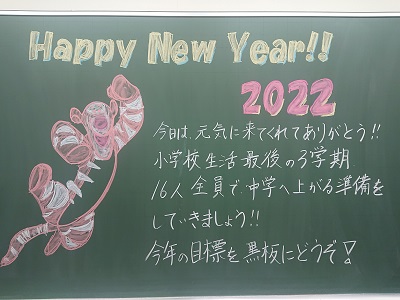 Happy New Year!!
2022
今日は、元気に来てくれてありがとう!!
小学校生活最後の3学期.
16人全員で、中学へ上がる準備を
していきましょう!!
今年の目標を黒板にどうぞ!